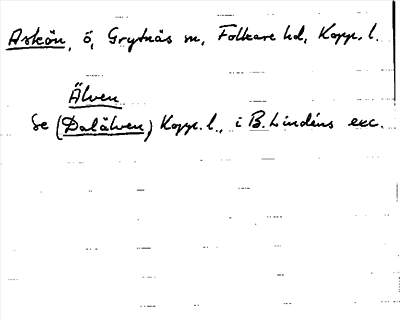 Askön, ö, Grytnäs sn, Folkare hd, Kopp. l.
Älven
Se (Dalälven) Kopp. l., i B. Lindéns exc.